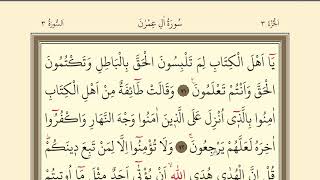 الجُزْءُ ٣ سُورَةُ اٰلِ عِمْرٰنَ السُّورَةُ ٣
يَٓا اَهْلَ الْكِتَابِ لِمَ تَلْبِسُونَ الْحَقَّ بِالْبَاطِلِ وَتَكْتُمُونَ
الْحَقَّ وَاَنْتُمْ تَعْلَمُونَ ﴿٧١﴾ وَقَالَتْ طَٓائِفَةٌ مِنْ اَهْلِ الْكِتَابِ
اٰمِنُوا بِالَّذٖٓى اُنْزِلَ عَلَى الَّذٖينَ اٰمَنُوا وَجْهَ النَّهَارِ وَاكْفُرُٓوا
اٰخِرَهُ لَعَلَّهُمْ يَرْجِعُونَ ﴿٧٢﴾ وَلَا تُؤْمِنُٓوا اِلَّا لِمَنْ تَبِعَ دٖينَكُمْ
قُلْ اِنَّ الْهُدٰى هُدَى اللّٰهِ اَنْ يُؤْتٰٓى اَحَدٌ مِثْلَ مَٓا اُوتٖيتُمْ